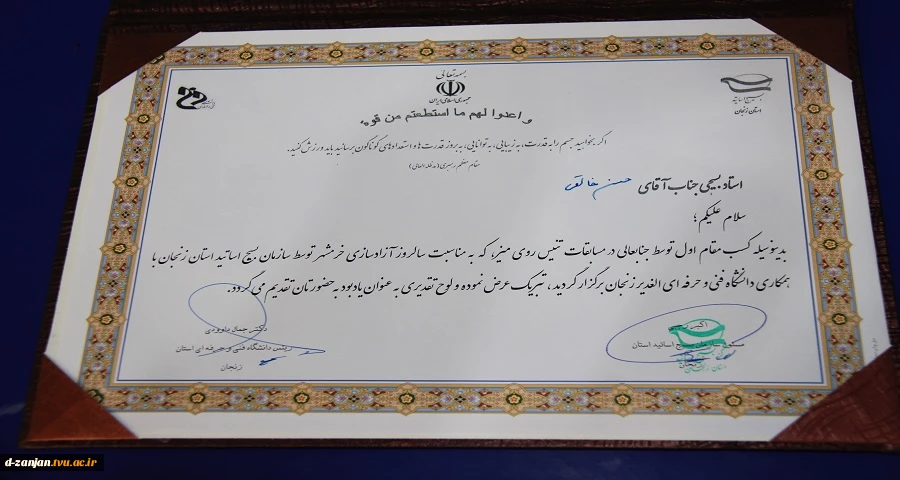 بسمه تعالی
جمهوری اسلامی ایران
واعدوا لهم ما استطعتم من قوه
بسیج اساتید
استان زنجان
اگر بخواهید جسم را به قدرت، به زیبایی، به توانایی، به بروز قدرت ها و استعدادهای گوناگون برسانید باید ورزش کنید.
مقام معظم رهبری (مدظله العالی)
استاد بسیجی جناب آقای حسن خالق
سلام علیکم؛
بدینوسیله کسب مقام اول توسط جنابعالی در مسابقات تنیس روی میز، که به مناسبت سالروز آزادسازی خرمشهر توسط سازمان بسیج اساتید استان زنجان با
همکاری دانشگاه فنی و حرفه ای الغدیر زنجان برگزار گردید، تبریک عرض نموده و لوح تقدیری به عنوان یادبود به حضورتان تقدیم می گردد.
اکبر
مسئول سازمان بسیج اساتید استان
زنجان
دکتر جمال داوودی
رئیس دانشگاه فنی و حرفه ای استان
زنجان
d-zanjan.tvu.ac.ir